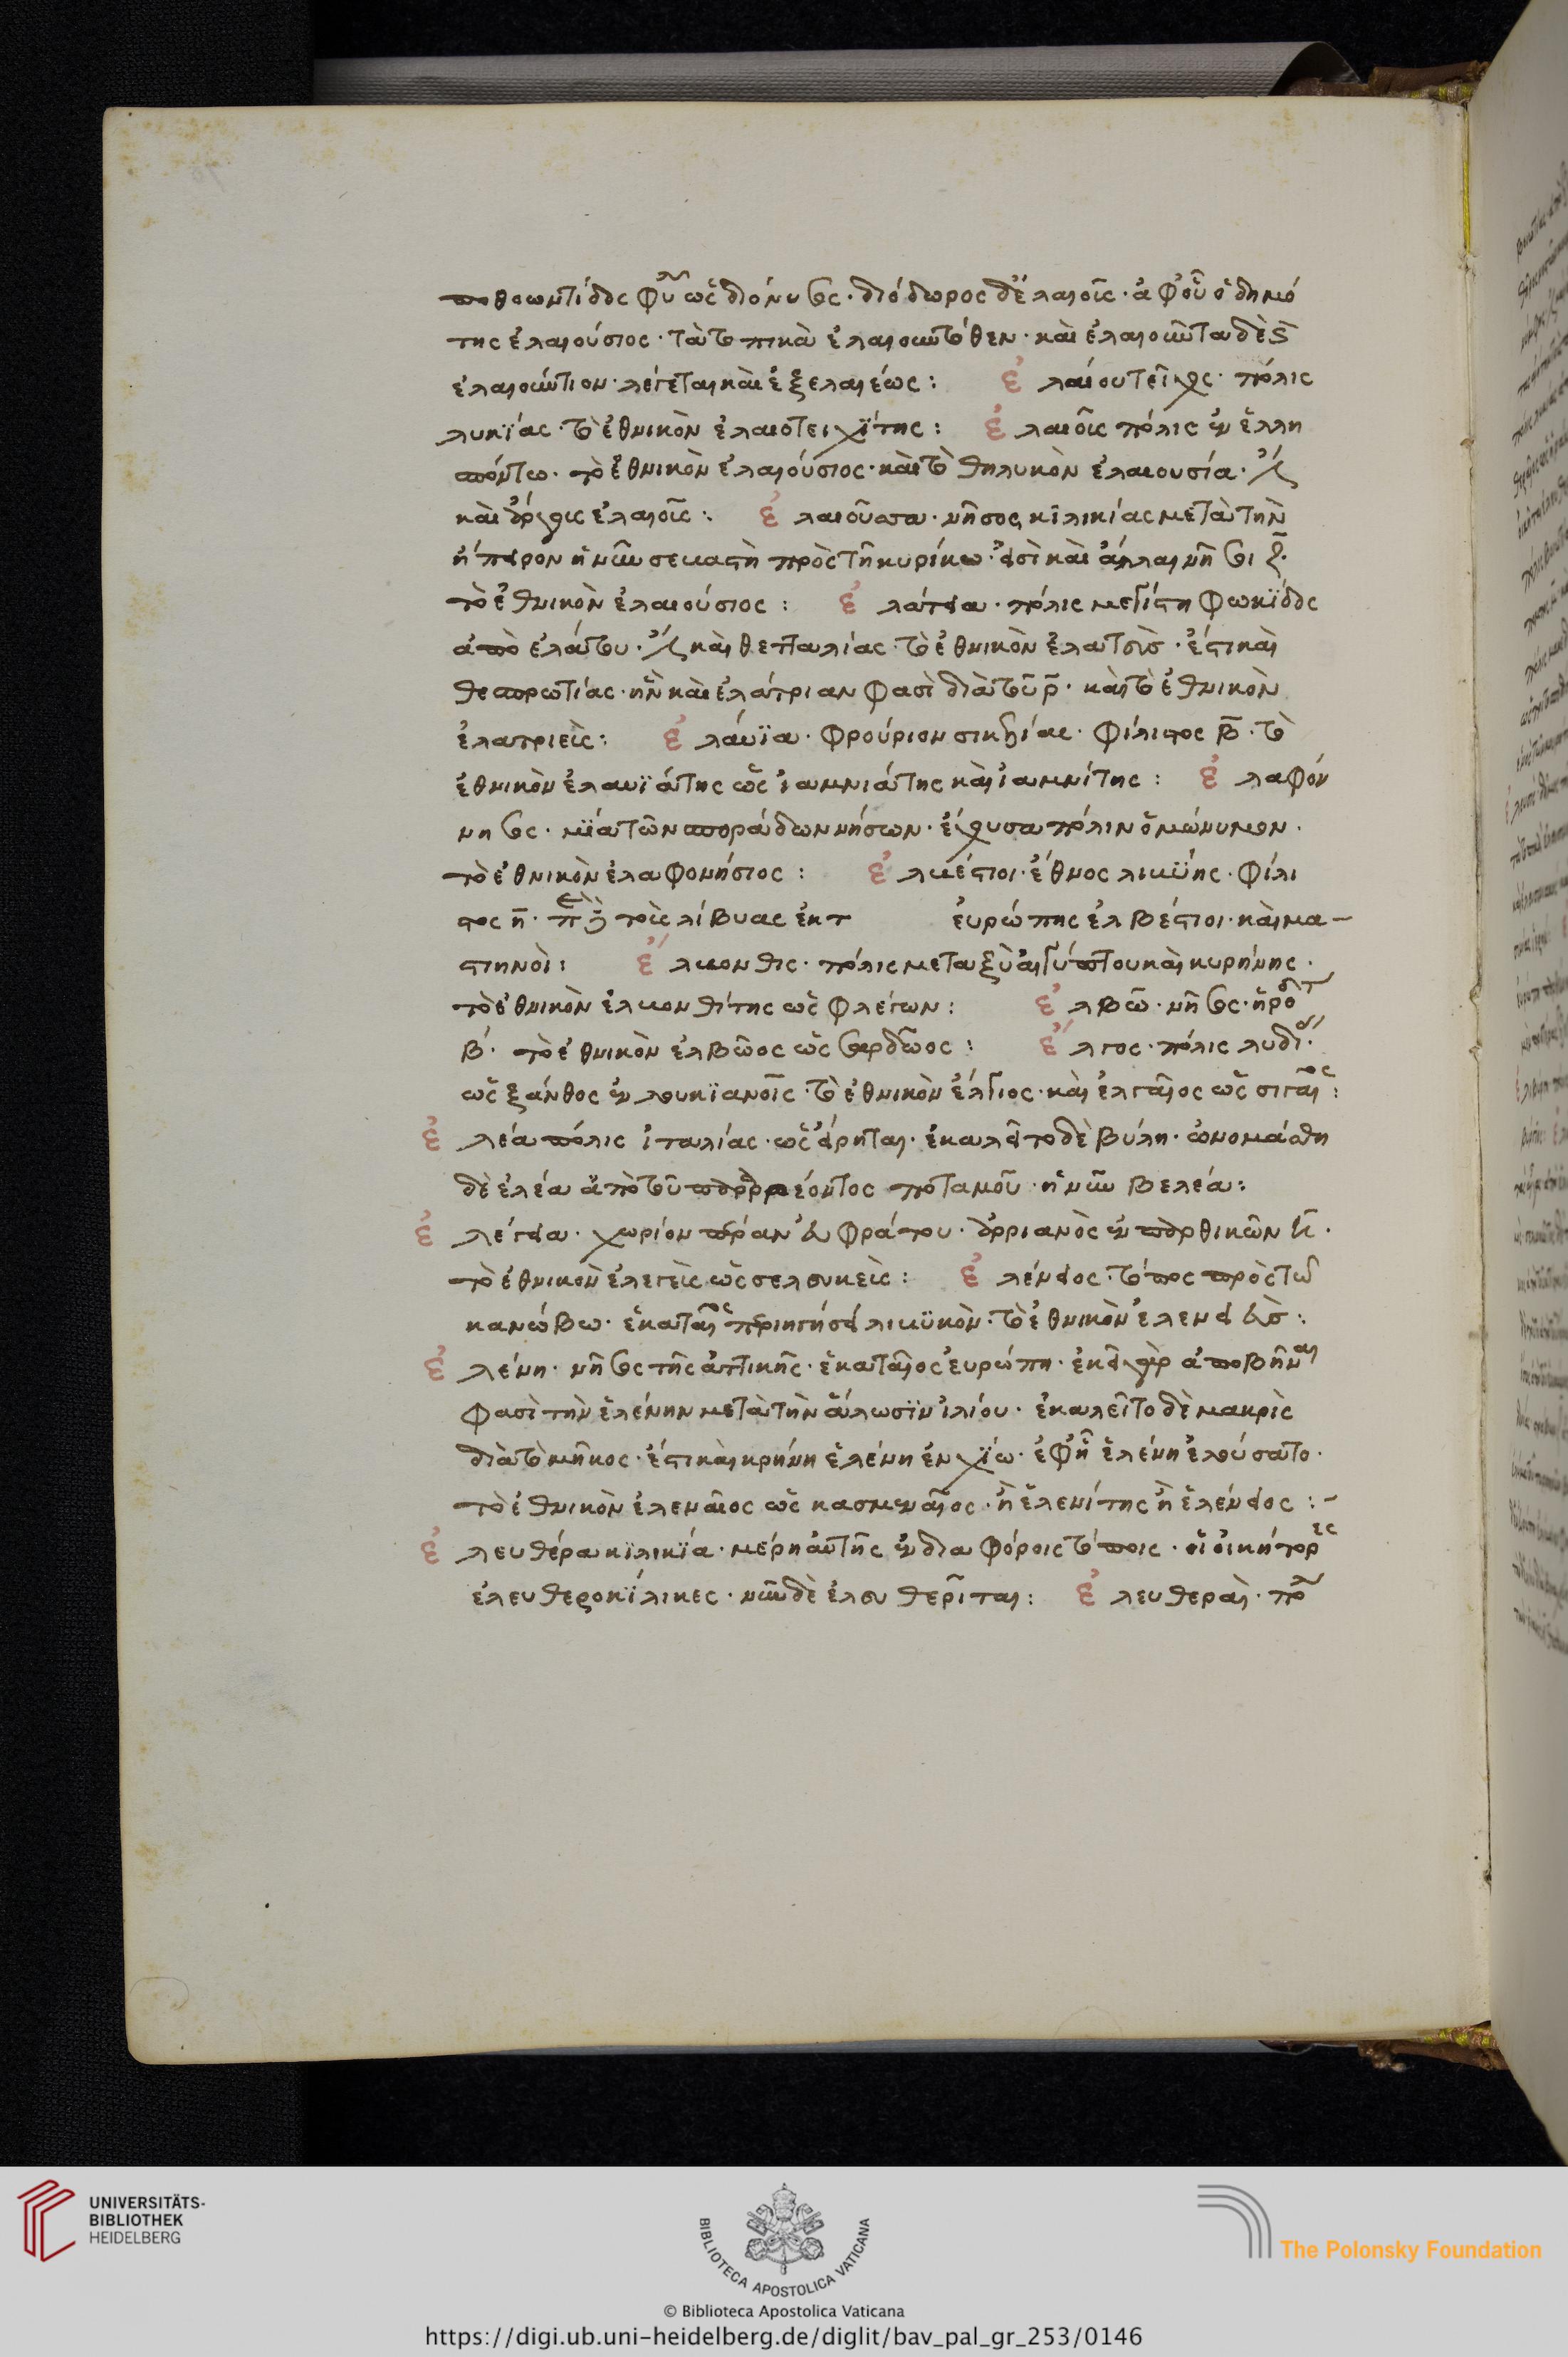 ποθοωντίδος φυ ὡς διόνυσος· διόδωρος δὲ ἐλαιοῖς· ἀφ' οὗ ὁ δημό
της ἐλαιούσιος· τὰ τοπικὰ ἐλαιοωτόθεν· καὶ ἐλαιοῶντα δὲ
ἐλαιοώντιον· λέγεται καὶ ἐξ ἐλαιέως: ἐλαίου τεῖχος· πόλις
λυκίας· τὸ ἐθνικὸν ἐλαιοτειχίτης: ἐλαιοῖς πόλις ἐν ἑλλη
σπόντω· τὸ ἐθνικὸν ἐλαιούσιος· καὶ τὸ θηλυκὸν ἐλαιουσία·
καὶ ἐλαιοῖς: ἐλαιοῦσσα· νῆσος κιλικίας μετὰ τὴν
ἤπειρον ἡ νῦν σεβαστὴ πρὸς τῆ κυρίκω· εἰσὶ καὶ ἄλλαι νῆσοι ζ̄·
τὸ ἐθνικὸν ἐλαιούσιος: ἐλάτεια· πόλις μεγίστη φωκίδος
ἀπὸ ἐλάτου· καὶ θετταλίας· τὸ ἐθνικὸν ἐλατεὺς· ἔστι καὶ
θεσπρωτίας· ἣν καὶ ἐλάτριαν φασὶ διὰ τοῦ ρ̄· καὶ τὸ ἐθνικὸν
ἐλατριεὶς: ἐλάυϊα· φρούριον σικελίας· φίλιστος β̄· τὸ
ἐθνικὸν ἐλαυϊάτης ὡς ἰαμνιάτης καὶ ἰαμνίτης: ἐλαφόν
νησος· μία τῶν σποράδων νήσων· ἔχουσα πόλιν ὁμώνυμον·
τὸ ἐθνικὸν ἐλαφονήσιος: ἐλβέστιοι· ἔθνος λιβύης· φίλι
στος η̄· τοὶς λίβυας ἐκ τ ἐυρώπης ἐλβέστιοι· καὶ μα-
στιηνοὶ: ἔλβονθις· πόλις μεταξὺ αἰγύπτου καὶ κυρήνης·
τὸ ἐθνικὸν ἐλβονθίτης ὡς φλέγων: ἐλβῶ· νῆσος· ἡρόδτ
β· τὸ ἐθνικὸν ἐλβῶος ὡς σαρδῶος: ἔλγος· πόλις λυδί·
ὡς ξάνθος ἐν λουκϊανοῖς· τὸ ἐθνικὸν ἔλγιος· καὶ ἐλγαῖος ὡς σιγαῖος:
ἐλέα πόλις ἰταλίας· ὡς εἴρηται· ἐκαλεῖτο δὲ βύλη· ὠνομάσθη
δὲ ἐλέα ἀπὸ τοῦ παραρρέοντος ποταμοῦ· ἡ νῦν βελέα:
ἐλέγεια· χωρίον πέραν εὐφράτου· ἀρριανὸς ἐν παρθικῶν η̄·
τὸ ἐθνικὸν ἐλεγεὶς ὡς σελευκεὶς: ἐλένειος· τόπος πρὸς τῶ
κανώβω· ἑκαταῖος περιηγήσει λιβϋκὸν· τὸ ἐθνικὸν ἐλενειεὺς:
ἑλένη· νῆσος τῆς ἀττικῆς· ἑκαταῖος ἐυρώπη· ἐκεῖ γὰρ ἀποβῆναι
φασὶ τὴν ἑλένην μετὰ τὴν ἅλωσϊν ἰλίου· ἐκαλεῖτο δὲ μακρὶς
διὰ τὸ μῆκος· ἔστι καὶ κρήνη ἑλένη ἐν χίω· ἐφ' ἧ ἑλένη ἐλούσατο·
τὸ ἐθνικὸν ἑλεναῖος ὡς κασμεναῖος· ἢ ἑλενίτης ἢ ἑλένειος:-
ἐλευθέρα κϊλικϊά· μέρη αὐτῆς ἐν διαφόροις τόποις· οἱ οἰκήτορες
ἐλευθεροκϊλικες· νῦν δὲ ἐλευθερῖται: ἐλευθεραὶ· πο
UNIVERSITÄTS-
BIBLIOTHEK
HEIDELBERG
BIBLIOTECA APOSTOLICA VATICANA
The Polonsky Foundation
© Biblioteca Apostolica Vaticana
https://digi.ub.uni-heidelberg.de/diglit/bav_pal_gr_253/0146